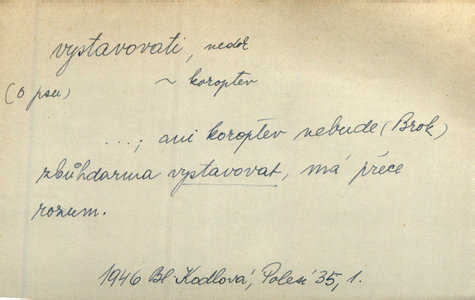 vystavovati, nedok
~ koroptev
(o psu)
...; ani koroptev nebude (Brok)
zbůhdarma vystavovat, má přece
rozum.
1946 Bl. Kodlová, Polesí 35, 1.